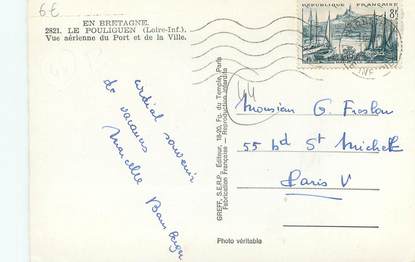 6€
EN BRETAGNE.
2821. LE POULIGUEN (Loire-Inf.).
Vue aérienne du Port et de la Ville.
REPUBLIQUE FRANÇAISE
8F
cordial souvenir
de vacances
Marcelle
GREFF, S.E.R.P., Editeur, 18-20, Fg. du Temple, Paris
Fabrication Française - Reproduction interdite
44
Monsieur G.
55 bd St Michel
Paris V
Photo véritable